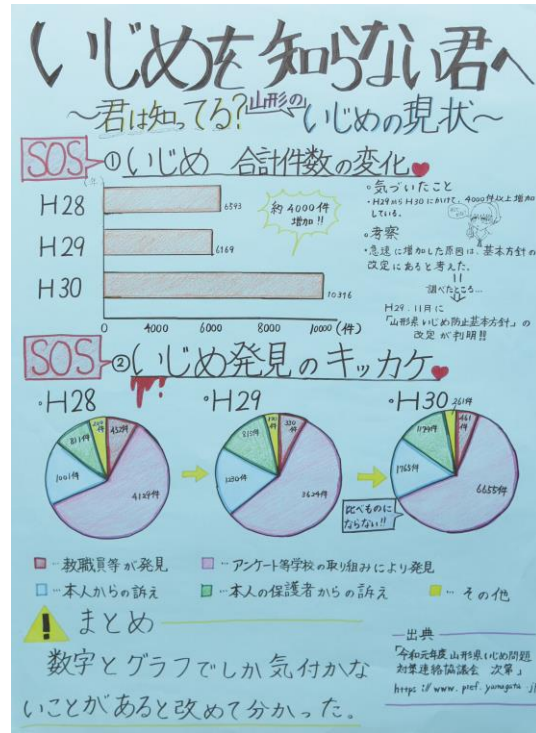 いじめを知らない君へ
～君は知ってる?山形のいじめの現状～
SOS ①いじめ 合計件数の変化
(年)
H28 6593
H29 6169
H30 10396
0 4000 6000 8000 10000 (件)
約4000件
増加!!
○気づいたこと
・H29からH30にかけて、4000件以上増加
している。
○考察
・急速に増加した原因は、基本方針の
改定にあると考えた。
調べたところ…
H29.11月に
「山形県いじめ防止基本方針」の
改定が判明!!
SOS ②いじめ発見のキッカケ
○H28
432件
4129件
1001件
811件
○H29
330件
3624件
1230件
813件
○H30
261件
461件
6655件
1763件
1179件
比べものに
ならない!!
…教職員等が発見
…アンケート等学校の取り組みにより発見
…本人からの訴え
…本人の保護者からの訴え
… その他
! まとめ
数字とグラフでしか気付かな
いことがあると改めて分かった。
出典
「令和元年度 山形県いじめ問題
対策連絡協議会 次第」
https://www.pref.yamagata.j